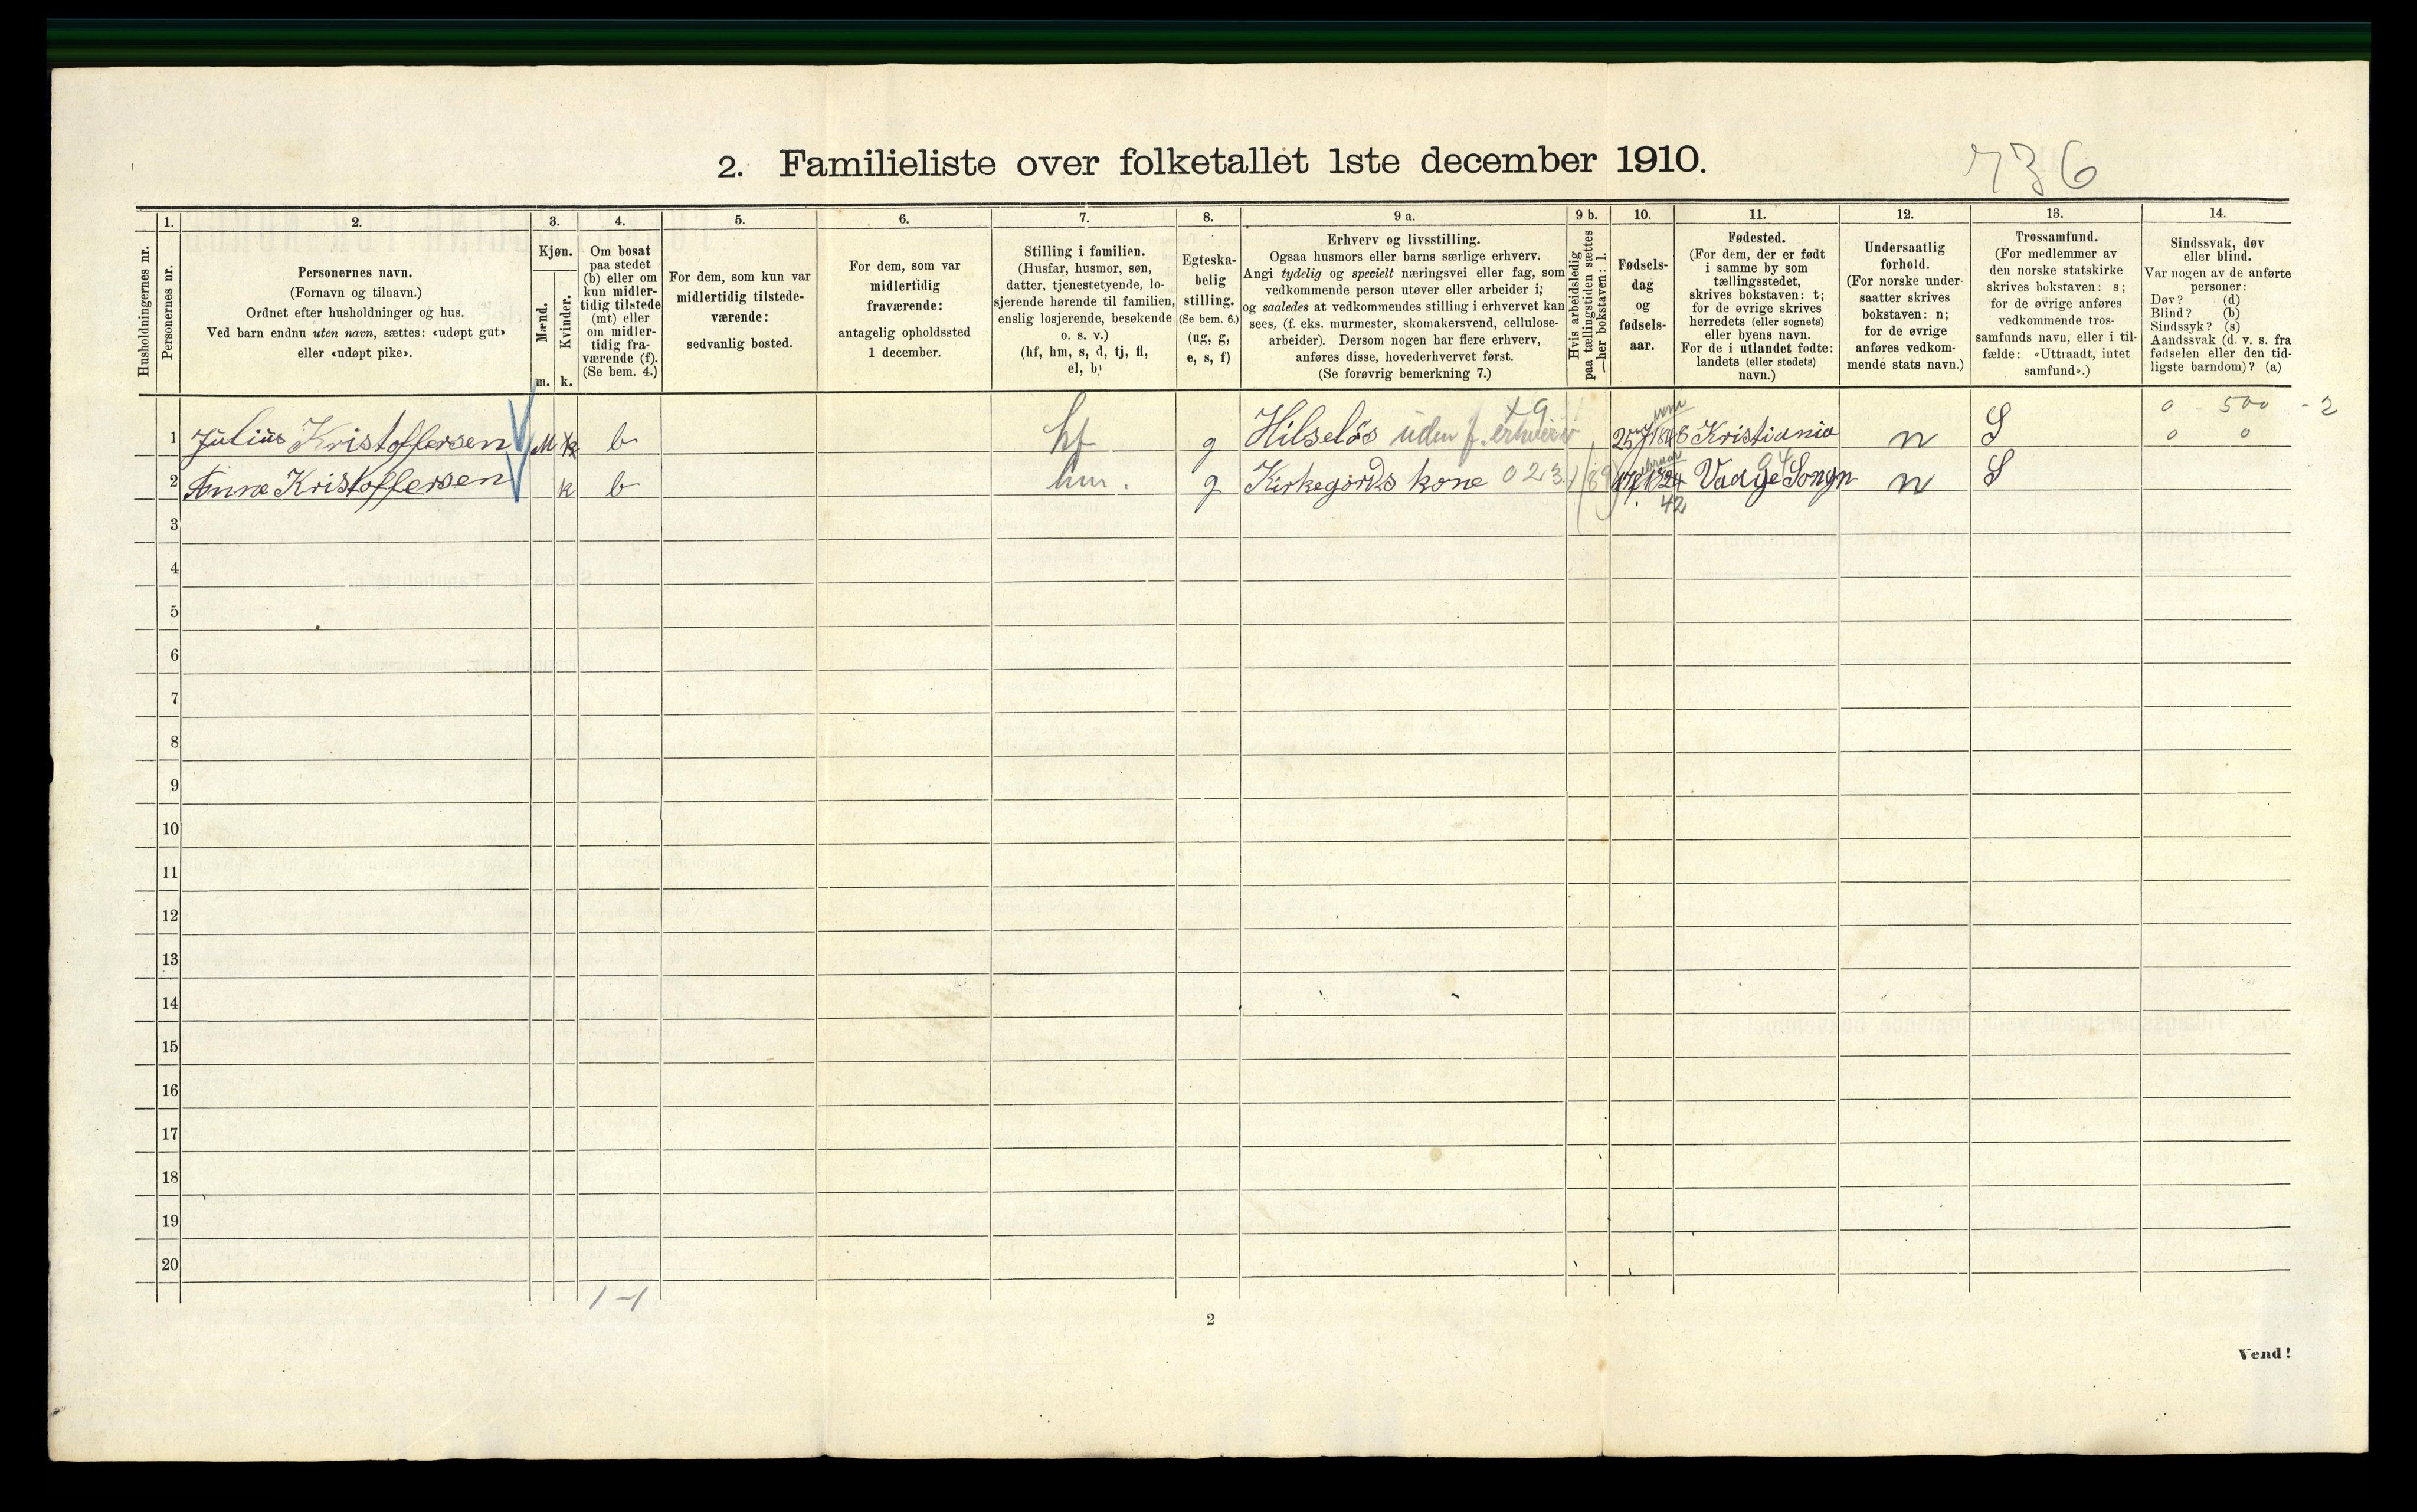 2. Familieliste over folketallet 1ste december 1910.
736
Husholdningernes nr.
1.
Personernes nr.
2.
Personernes navn.
(Fornavn og tilnavn.)
Ordnet efter husholdninger og hus.
Ved barn endnu uten navn, sættes: «udøpt gut»
eller «udøpt pike».
3.
Kjøn.
Mænd.
Kvinder.
m. k.
4.
Om bosat
paa stedet
(b) eller om
kun midler-
tidig tilstede
(mt) eller
om midler-
tidig fra-
værende (f).
(Se bem. 4.)
5.
For dem, som kun var
midlertidig tilstede-
værende:
sedvanlig bosted.
6.
For dem, som var
midlertidig
fraværende:
antagelig opholdssted
1 december.
7.
Stilling i familien.
(Husfar, husmor, søn,
datter, tjenestetyende, lo-
sjerende hørende til familien,
enslig losjerende, besøkende
o. s. v.)
(hf, hm, s, d, tj, fl,
el, b)
8.
Egteska-
belig
stilling.
(Se bem. 6.)
(ug, g,
e, s, f)
9 a.
Erhverv og livsstilling.
Ogsaa husmors eller barns særlige erhverv.
Angi tydelig og specielt næringsvei eller fag, som
vedkommende person utøver eller arbeider i,
og saaledes at vedkommendes stilling i erhvervet kan
sees, (f. eks. murmester, skomakersvend, cellulose-
arbeider). Dersom nogen har flere erhverv,
anføres disse, hovederhvervet først.
(Se forøvrig bemerkning 7.)
9 b.
Hvis arbeidsledig
paa tællingstiden sættes
her bokstaven: l.
10.
Fødsels-
dag
og
fødsels-
aar.
11.
Fødested.
(For dem, der er født
i samme by som
tællingsstedet,
skrives bokstaven: t;
for de øvrige skrives
herredets (eller sognets)
eller byens navn.
For de i utlandet fødte:
landets (eller stedets)
navn.)
12.
Undersaatlig
forhold.
(For norske under-
saatter skrives
bokstaven: n;
for de øvrige
anføres vedkom-
mende stats navn.)
13.
Trossamfund.
(For medlemmer av
den norske statskirke
skrives bokstaven: s;
for de øvrige anføres
vedkommende tros-
samfunds navn, eller i til-
fælde: «Uttraadt, intet
samfund».)
14.
Sindssvak, døv
eller blind.
Var nogen av de anførte
personer:
Døv? (d)
Blind? (b)
Sindssyk? (s)
Aandssvak (d. v. s. fra
fødselen eller den tid-
ligste barndom)? (a)
0 - 500 - 2
1 Julius Kristoffersen M b hf g Hilseløs uden f. erhverv Kristiania n S 0 0
2 Anna Kristoffersen k b hm. g Kirkegords kone 023 n S
42
3
4
5
6
7
8
9
10
11
12
13
14
15
16
17
18
19
20
1-1
2
Vend!